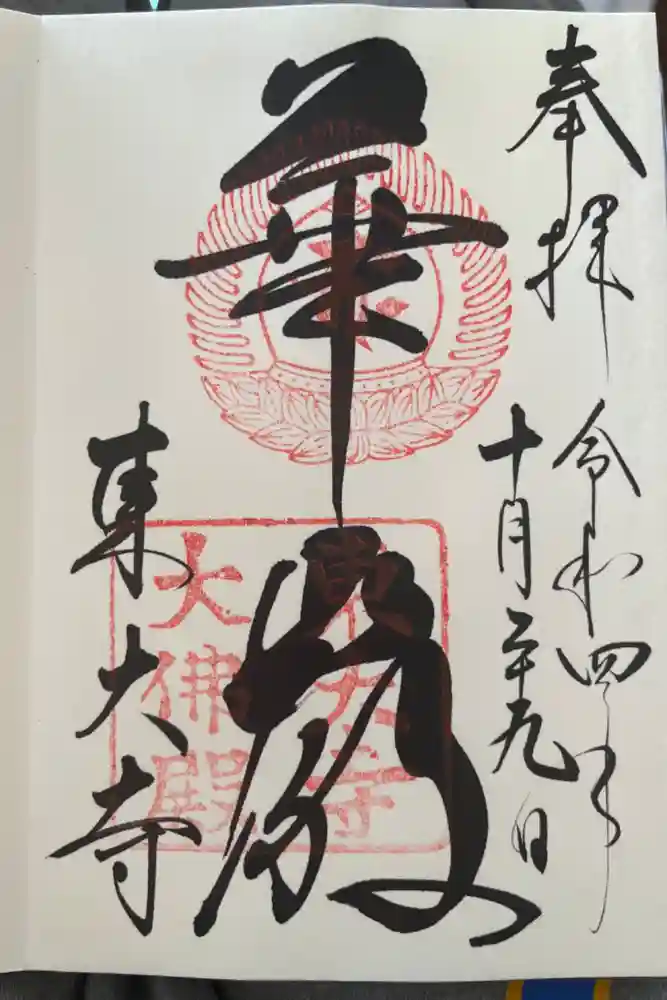 奉拝
令和四年
十月二十九日
華厳
東大寺
東大寺
大佛殿